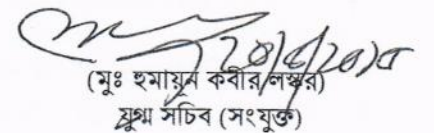 ২৪/৫/২০১৫
(মুঃ হুমায়ুন কবীর লস্কর)
যুগ্ম সচিব (সংযুক্ত)